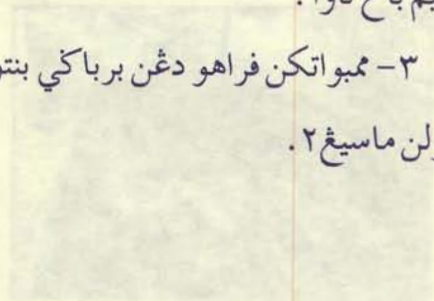 ٣- ممبواتكن فراهو دڠن برباݢي بنتو
لن ماسيڠ٢.